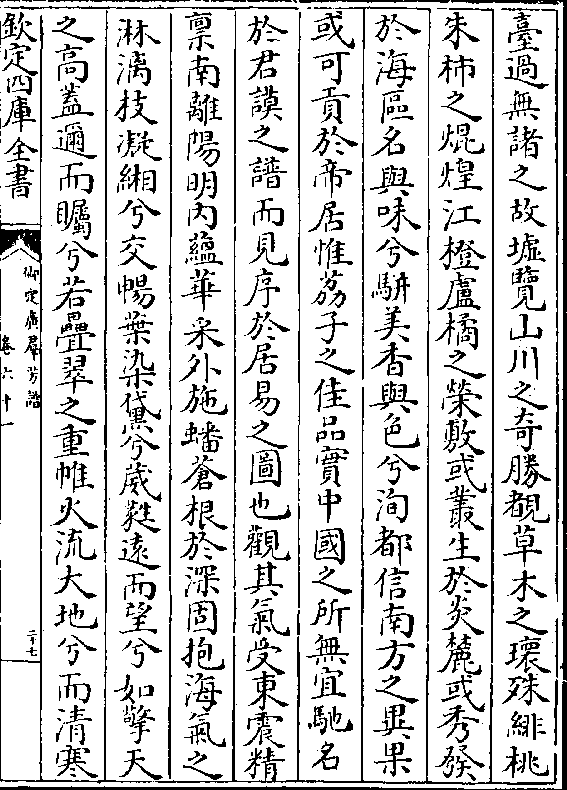 臺過無諸之故墟覽山川之奇勝覩草木之瓌殊緋桃
朱柿之焜煌江橙盧橘之榮敷或叢生於炎麓或秀發
於海區名與味兮駢美香與色兮洵都信南方之異果
或可貢於帝居惟荔子之佳品實中國之所無宜馳名
於君謨之譜而見序於居易之圖也觀其氣受東震精
禀南離陽明内蘊華采外施蟠蒼根於深固抱海氣之
淋漓枝凝緗兮交暢葉染黛兮葳蕤遠而望兮如擎天
之高蓋邇而矚兮若疊翠之重帷火流大地兮而清寒
欽定四庫全書
御定廣羣芳譜
卷六十一
二十七